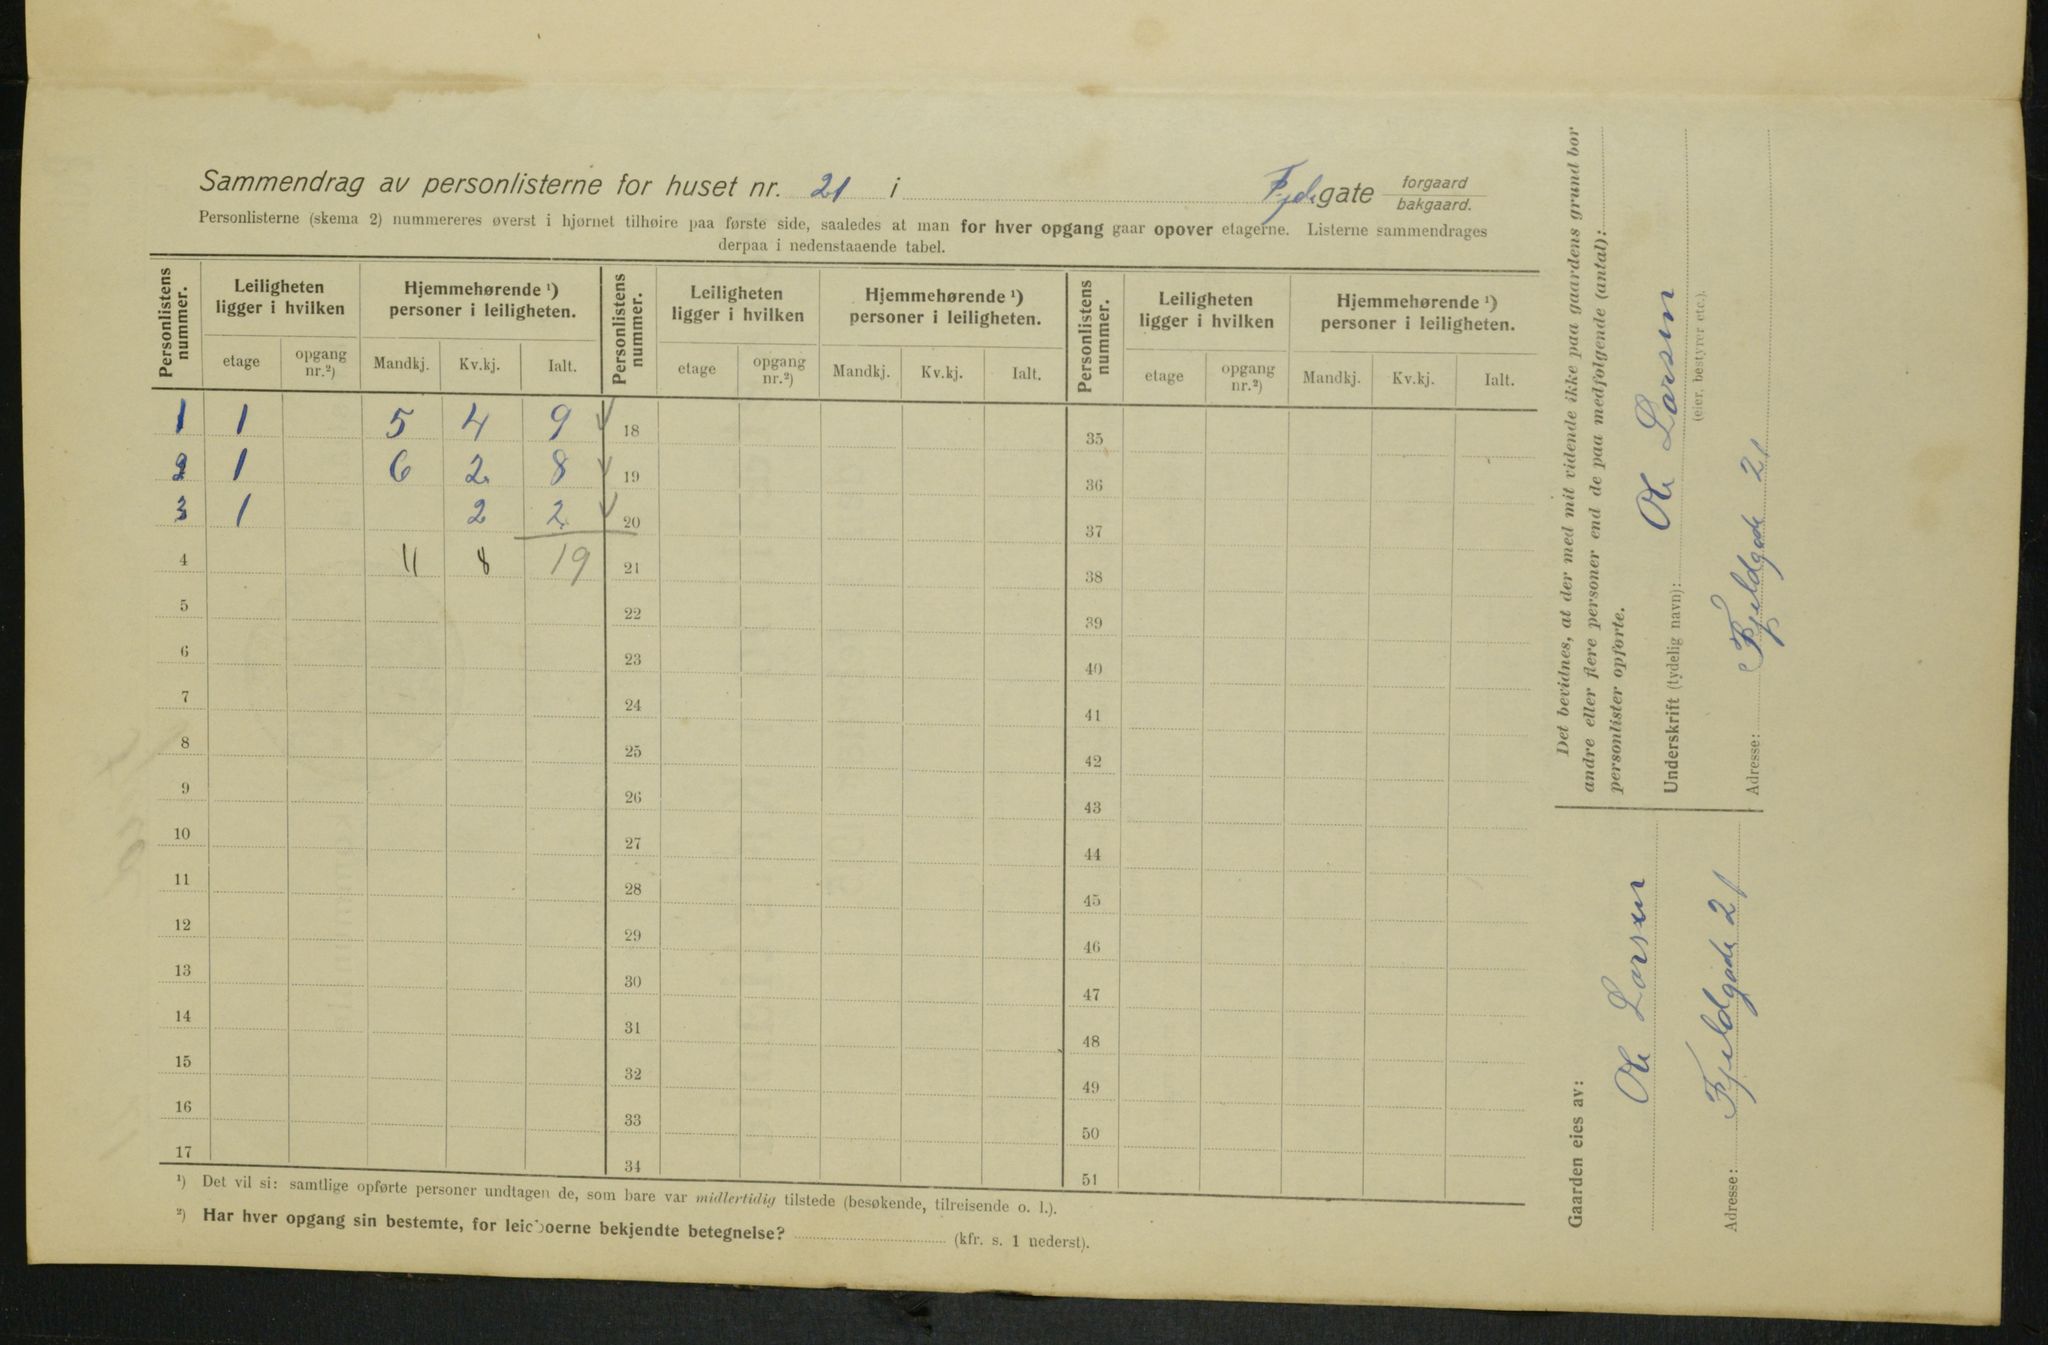 Sammendrag av personlisterne for huset nr. 21 i gate forgaard bakgaard.
Personlisterne (skema 2) nummereres øverst i hjørnet tilhøire paa første side, saaledes at man for hver opgang gaar opover etagerne. Listerne sammendrages
derpaa i nedenstaaende tabel.
Personlistens nummer. Leiligheten ligger i hvilken Hjemmehørende ¹) personer i leiligheten. Personlistens nummer. Leiligheten ligger i hvilken Hjemmehørende ¹) personer i leiligheten. Personlistens nummer. Leiligheten ligger i hvilken Hjemmehørende ¹) personer i leiligheten.
etage opgang nr.²) Mandkj. Kv.kj. Ialt. etage opgang nr.²) Mandkj. Kv.kj. Ialt. etage opgang nr.²) Mandkj. Kv.kj. Ialt.
1 1 5 4 9 18 35
2 1 6 2 8 19 36
3 1 2 2 20 37
4 11 8 19 21 38
5 22 39
6 23 40
7 24 41
8 25 42
9 26 43
10 27 44
11 28 45
12 29 46
13 30 47
14 31 48
15 32 49
16 33 50
17 34 51
¹) Det vil si: samtlige opførte personer undtagen de, som bare var midlertidig tilstede (besøkende, tilreisende o. l.).
²) Har hver opgang sin bestemte, for leieboerne bekjendte betegnelse? (kfr. s. 1 nederst).
Det bevidnes, at der med mit vidende ikke paa gaardens grund bor
andre eller flere personer end de paa medfølgende (antal):
personlister opførte.
Underskrift (tydelig navn): Ole Larsen
(eier, bestyrer etc.).
Adresse: Fjeldgade 21
Gaarden eies av:
Ole Larsen
Adresse: Fjeldgade 21